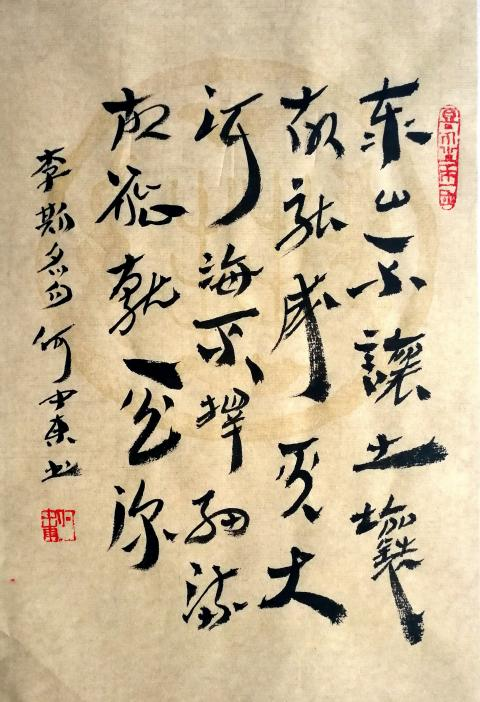 泰山不讓土壤
故能成其大
河海不擇細流
故能就其深
李斯名句 何中東书